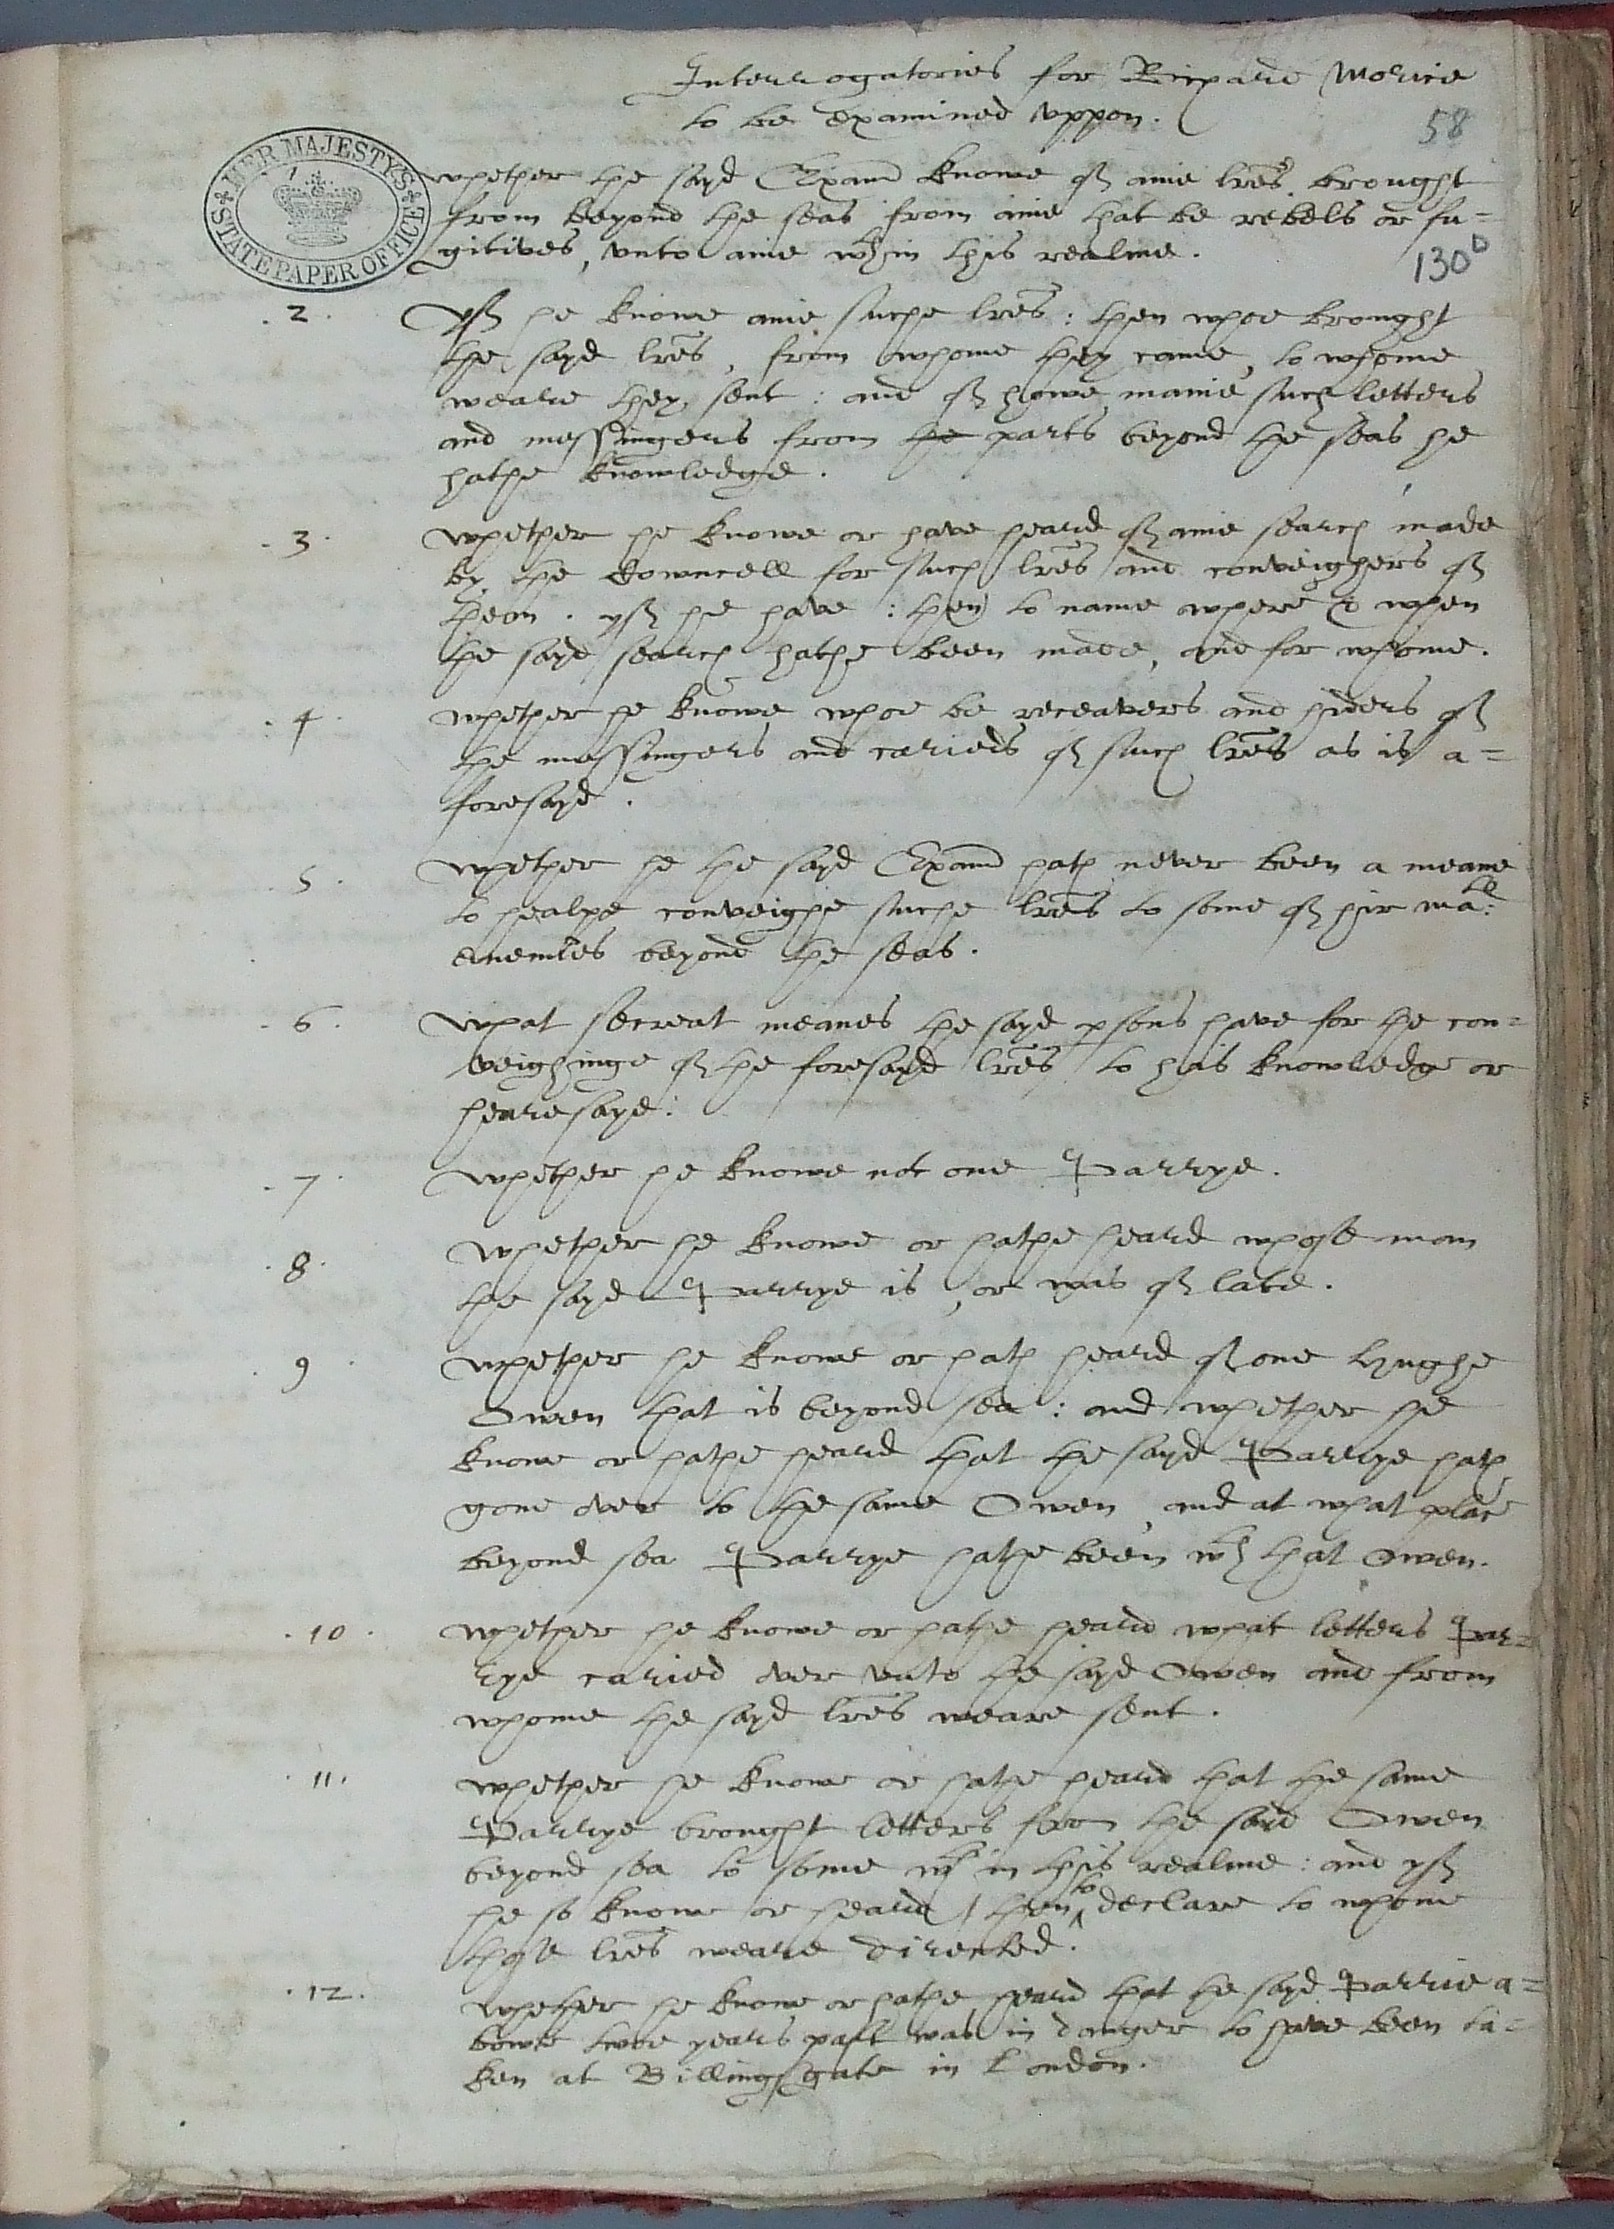 Interrogatories for Richard Morice
to be examined uppon.
58
HER MAJESTY'S STATE PAPER OFFICE
1
whether the sayd Examd knowe of anie lres brought
from beyond the seas from anie that be rebels or fu=
gitives, unto anie wthin this realme.
130b
.2. Yf he knowe anie suche lres: then whoe brought
the sayd lres, from whome they came, to whome
weare they sent: and of howe manie such letters
and messingers from the parts beyond the seas he
hathe knowledge.
.3. whether he knowe or have heard of anie search made
by the Cowncell for such lres and conveighers of
them. yf he have: then to name where & when
the sayd search hathe been made, and for whome.
.4. whether he knowe whoe be receavers and hiders of
the messingers and cariers of such lres as is a=
foresayd.
5. whether he the sayd Examd hath never been a meane
to healpe conveighe suche lres to some of hir mate:
enemies beyond the seas.
.6. What secreat meanes the sayd psons have for the con=
veighinge of the foresayd lres to his knowledge or
hearesaye:
.7. whether he knowe not one Parrye.
.8. Whether he knowe or hathe heard whose man
the sayd Parrye is, or was of late.
.9. whether he knowe or hath heard of one Hughe
Owen that is beyond sea: and whether he
knowe or hathe heard that the sayd Parrye hath
gone over to the same Owen, and at what place
beyond sea Parrye hathe been wth that Owen.
.10. whether he knowe or hathe heard what letters Par=
rye caried over unto the sayd Owen and from
whome the sayd lres weare sent.
.11. whether he knowe or hathe heard that the same
Parrye brought letters from the sayd Owen
beyond sea to some wth in this realme: and yf
he so knowe or heard, then ^to declare to whome
those lres weare directed.
.12. Whether he knowe or hathe heard that the sayd Parrie a=
bowte twoe years past was in danger to have been ta=
ken at Billingsgate in London.